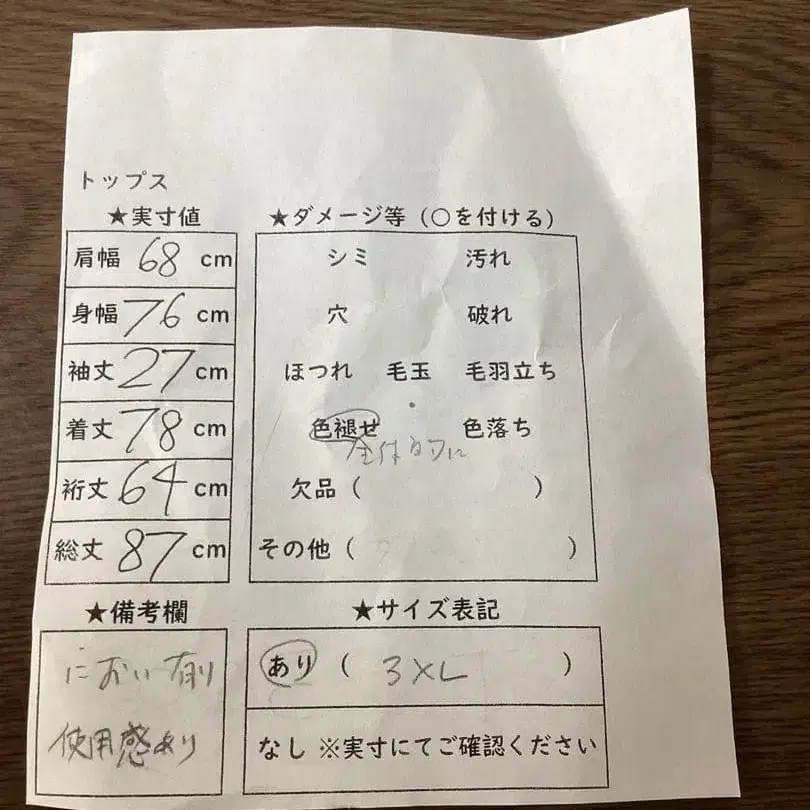 トップス
★実寸値
肩幅 68 cm
身幅 76 cm
袖丈 27 cm
着丈 78 cm
裄丈 64 cm
総丈 87 cm
★ダメージ等（○を付ける）
シミ 汚れ
穴 破れ
ほつれ 毛玉 毛羽立ち
色褪せ 色落ち
全体的に
欠品（ ）
その他（ ）
★備考欄
におい有り
使用感あり
★サイズ表記
あり（ 3XL ）
なし ※実寸にてご確認ください